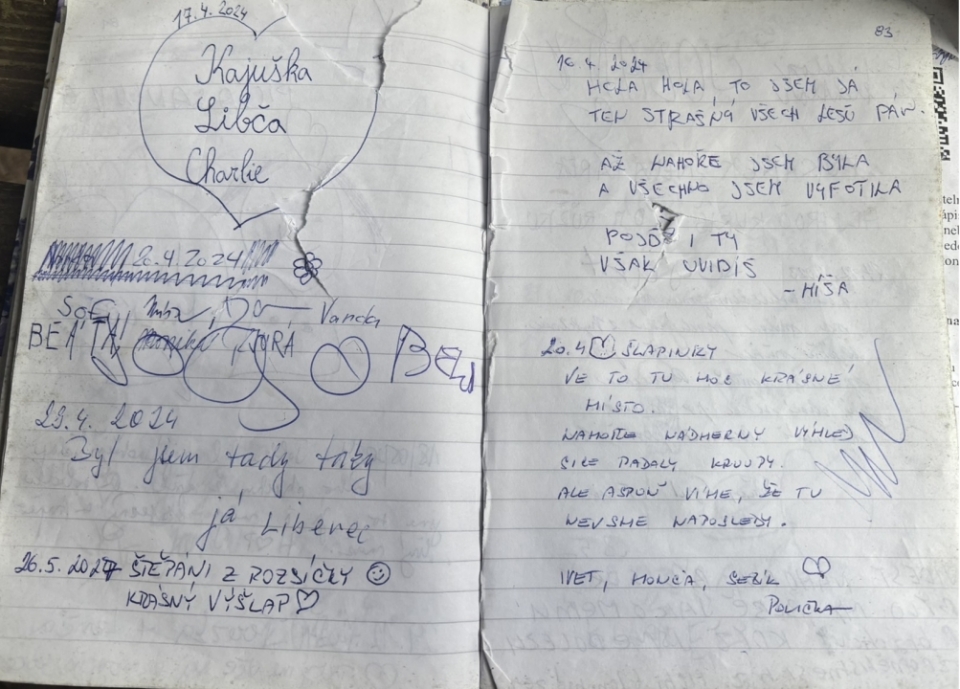 17.4.2024
Kajuška
Libča
Charlie
20.4.2024
Vanda
BEÁTA
29.4. 2024
Byl jsem tady taky
já Liberec
26.5.2024 ŠTĚPÁNI Z ROZSÍČKY ☺
KRÁSNÝ VÝŠLAP♡
83
16.4. 2024
HOLA HOLA TO JSEM JÁ
TEN STRAŠNÝ VŠECH LESŮ PÁN.
AŽ NAHOŘE JSEM BYLA
A VŠECHNO JSEM VYFOTILA
POJĎ I TY
VŠAK UVIDÍŠ
- MÍŠA
20.4 ŠLAPINKY
VE TO TU MOC KRÁSNÉ
MÍSTO.
NAHOŘE NÁDHERNÝ VÝHLED
SICE PADALY KROUPY.
ALE ASPOŇ VÍME, ŽE TU
NEJSME NAPOSLEDY.
IVET, MONČA, SEBÍK ♡
POLIČKA